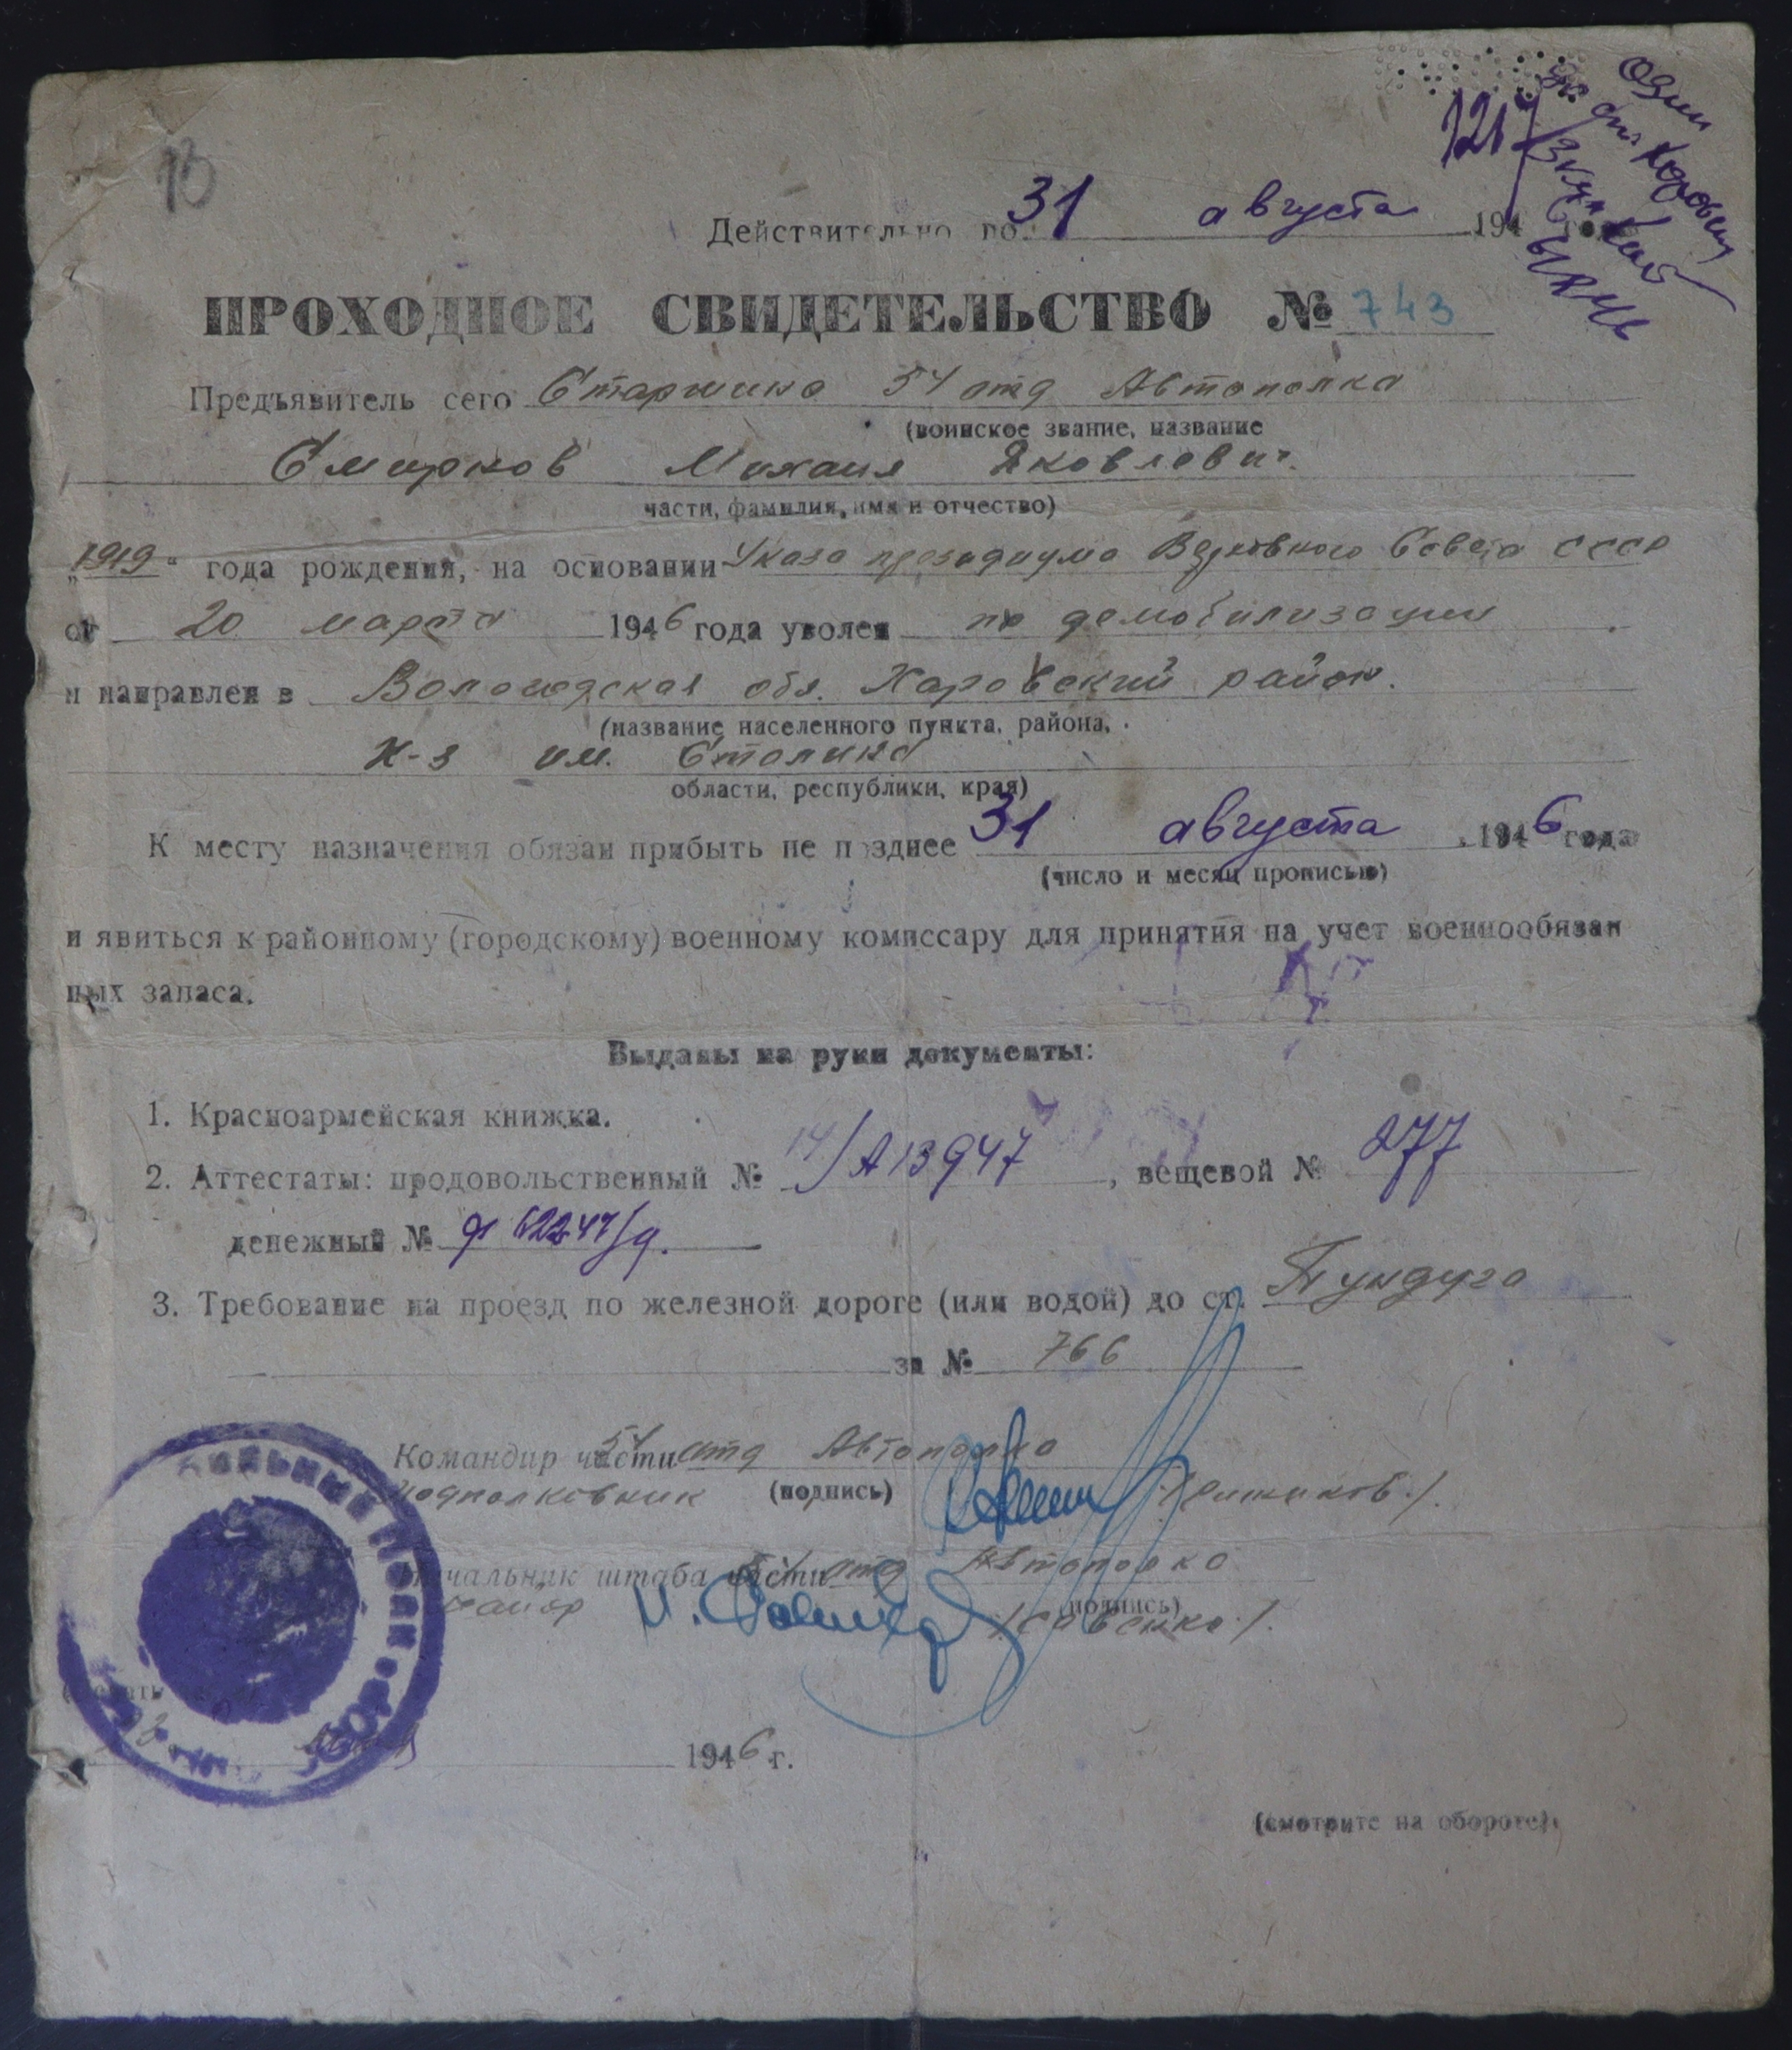 13
1217
Действительно по 31 августа 194 года
ПРОХОДНОЕ СВИДЕТЕЛЬСТВО № 743
Предъявитель сего Старшина 54 отд Автополка
(воинское звание, название
Смирнов Михаил Яковлевич.
части, фамилия, имя и отчество)
„1919“ года рождения, на основании Указа президиума Верховного Совета СССР
от 20 марта 1946 года уволен по демобилизации
и направлен в Вологодская обл. Харовский район.
(название населенного пункта, района,
к-з им. Сталина
области, республики, края)
К месту назначения обязан прибыть не позднее 31 августа, 1946 года
(число и месяц прописью)
и явиться к районному (городскому) военному комиссару для принятия на учет военнообязан
ных запаса.
Выданы на руки документы:
1. Красноармейская книжка.
2. Аттестаты: продовольственный № 14/А13947, вещевой № 277
денежный №
3. Требование на проезд по железной дороге (или водой) до ст. Пундуга
за № 766
Командир части 54 отд Автополка
Подполковник (подпись)
Начальник штаба части 54 отд Автополка
майор (подпись) /Савенко./
1946 г.
(смотрите на обороте)